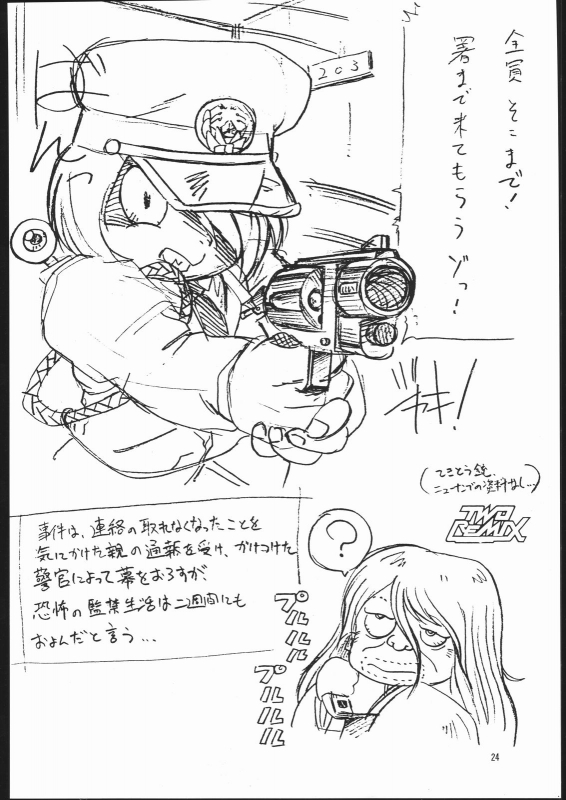 全員 そこまで!
署まで来てもらうゾっ!
203
ジャキ!
(てきとう銃、
ニューナンブの資料なし…)
TWO
REMIX
事件は、連絡の取れなくなったことを
気にかけた親の通報を受け、かけつけた
警官によって幕をおろすが、
恐怖の監禁生活は二週間にも
およんだと言う…
?
プルルルル
プルルルル
24